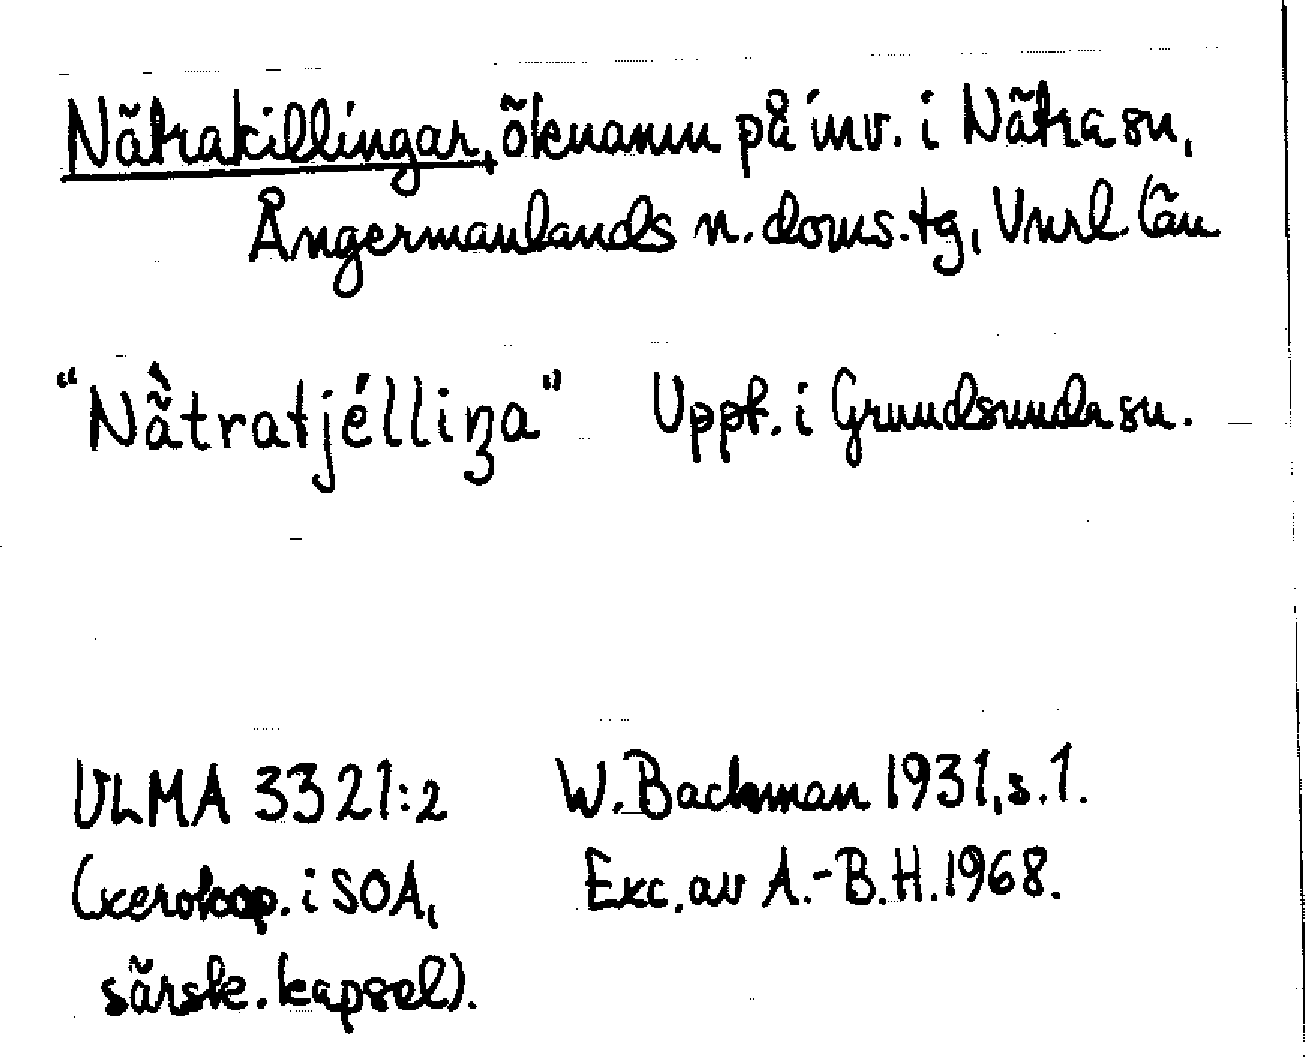 Nätrakillingar, öknamn på inv. i Nätra sn,
Ångermanlands n. doms.tg, Vnrl län
"Nä̀tratjélliŋa" Uppt. i Grundsunda sn.
ULMA 3321:2 W. Backman 1931, s. 1.
(xerokop. i SOA, Exc. av A.-B.H. 1968.
särsk. kapsel).